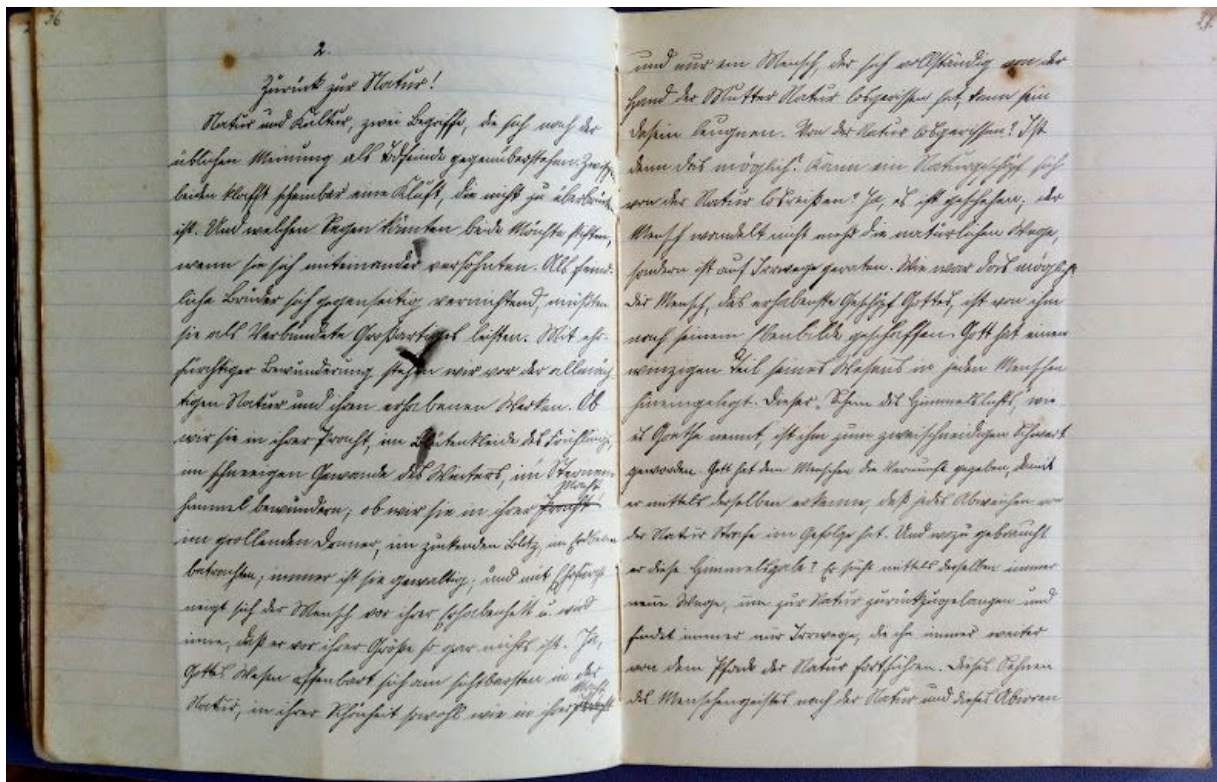 36
2.
Zurück zur Natur!
Natur und Kultur, zwei Begriffe, die sich nach der
üblichen Meinung als Todfeinde gegenüberstehen. Zwisch.
beiden klafft scheinbar eine Kluft, die nicht zu überbrücken
ist. Und welchen Segen könnten beide Mächte stiften,
wenn sie sich miteinander versöhnten. Als feind-
liche Brüder sich gegenseitig vernichtend, müßten
sie als Verbündete Großartiges leisten. Mit ehr-
fürchtiger Bewunderung stehen wir vor der allmäch-
tigen Natur und ihren erhabenen Werken. Ob
wir sie in ihrer Pracht, im Blütenkleide des Frühlings,
im schneeigen Gewande des Winters, im Sternen-
himmel bewundern; ob wir sie in ihrer Macht
im grollenden Donner, im zuckenden Blitz, im Erdbeben
betrachten; immer ist sie gewaltig, und mit Ehrfurcht
neigt sich der Mensch vor ihrer Erhabenheit u. wird
inne, daß er vor ihrer Größe so gar nichts ist. Ja,
Gottes Wesen offenbart sich am sichtbarsten in der
Natur, in ihrer Schönheit sowohl wie in ihrer Macht
37
und nur ein Mensch, der sich vollständig von der
Hand der Mutter Natur losgerissen hat, kann sein
Dasein leugnen. Von der Natur losgerissen? Ist
denn das möglich? Kann ein Naturgeschöpf sich
von der Natur losreißen? Ja, es ist geschehen; der
Mensch wandelt nicht mehr die natürlichen Wege,
sondern ist auf Irrwege geraten. Wie war das möglich?
Der Mensch, das erhabenste Geschöpf Gottes, ist von ihm
nach seinem Ebenbilde geschaffen. Gott hat einen
winzigen Teil seines Wesens in jeden Menschen
hineingelegt. Dieser „Schein des Himmelslichts, wie
es Goethe nennt, ist ihm zum zweischneidigen Schwert
geworden. Gott hat dem Menschen die Vernunft gegeben, damit
er mittels derselben erkenne, daß jedes Abweichen von
der Natur Strafe im Gefolge hat. Und wozu gebraucht
er diese Himmelsgabe? Er sucht mittels derselben immer
neue Wege, um zur Natur zurückzugelangen und
findet immer nur Irrwege, die ihn immer weiter
von dem Pfade der Natur fortführen. Dieses Sehnen
des Menschengeistes nach der Natur und dieses Abirren